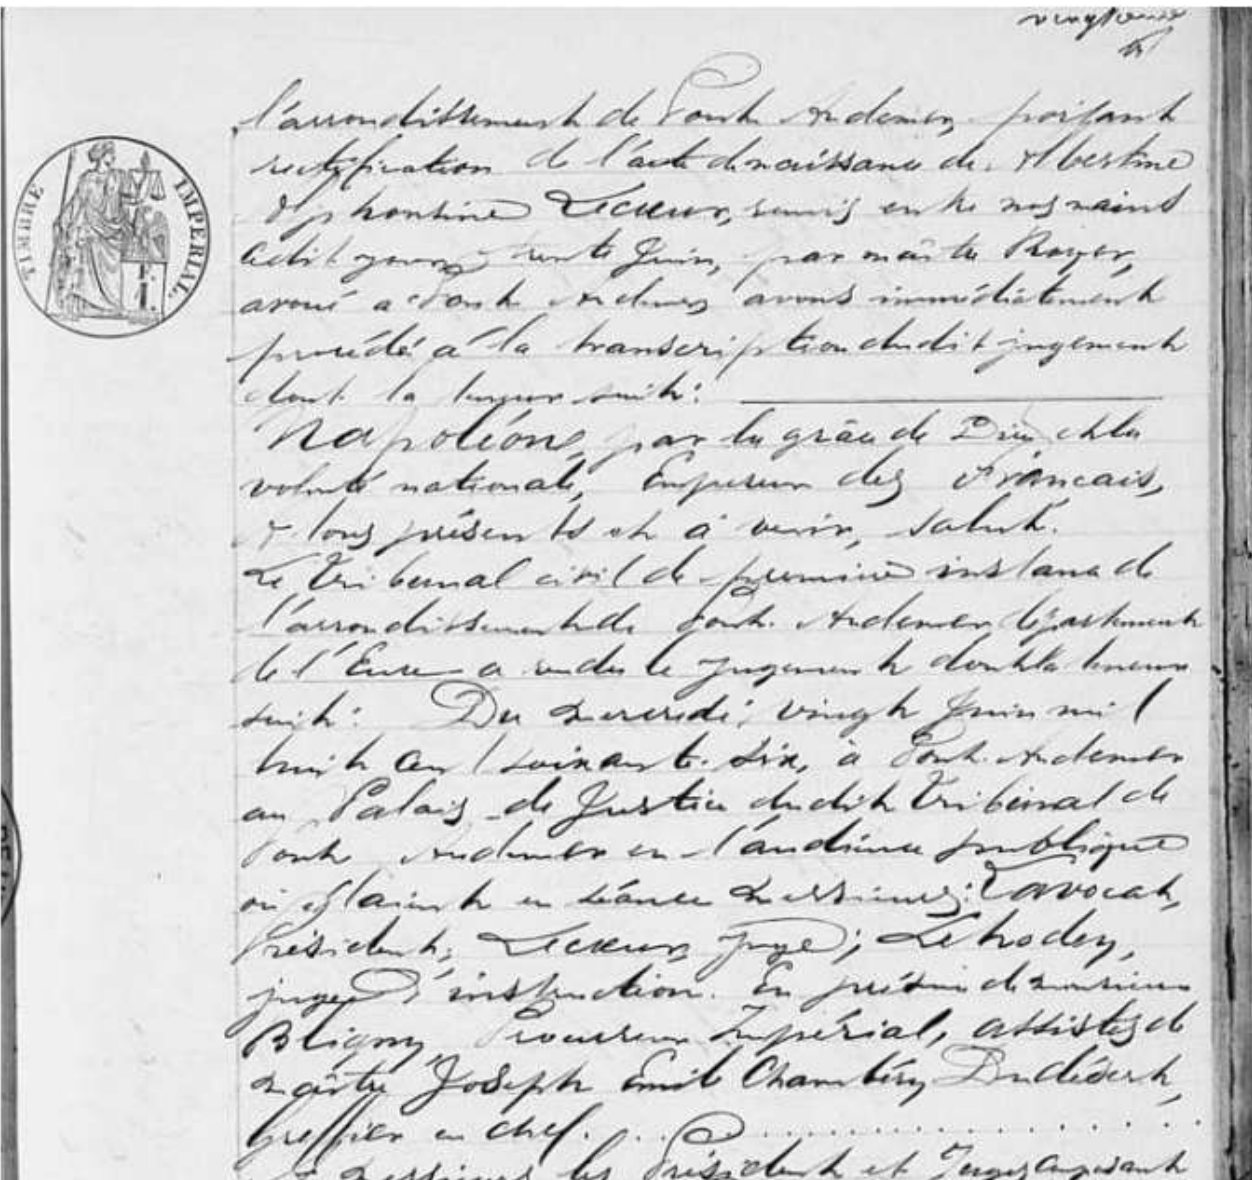 l'arrondissement de Pont Audemer, portant
rectification de l'acte de naissance de Albertine
Alphonsine Lecoeur, remis entre nos mains
cedit jour, trente Juin, par maître Royer,
avoué a Pont Audemer, avons immédiatement
procédé à la transcription dudit jugement
dont la teneur suit:
Napoléon, par la grâce de Dieu et la
volonté nationale, Empereur des Français,
A tous présents et à venir, salut.
Le Tribunal civil de première instance de
l'arrondissement de Pont-Audemer département
de l'Eure a rendu le jugement dont la teneur
suit: Du Mercredi, vingt Juin mil
huit cent soixante-six, à Pont-Audemer
au Palais de Justice dudit Tribunal de
Pont Audemer en l'audience publique
où étaient en séance Messieurs:
Président; Lecoeur, Juge; Lehodey,
juge d'instruction. En présence de monsieur
Bligny, Procureur Impérial, assistés de
Maître Joseph Emile Chambéry Dudésert,
Greffier en chef.
Messieurs les Président et Juges composant
TIMBRE IMPÉRIAL.